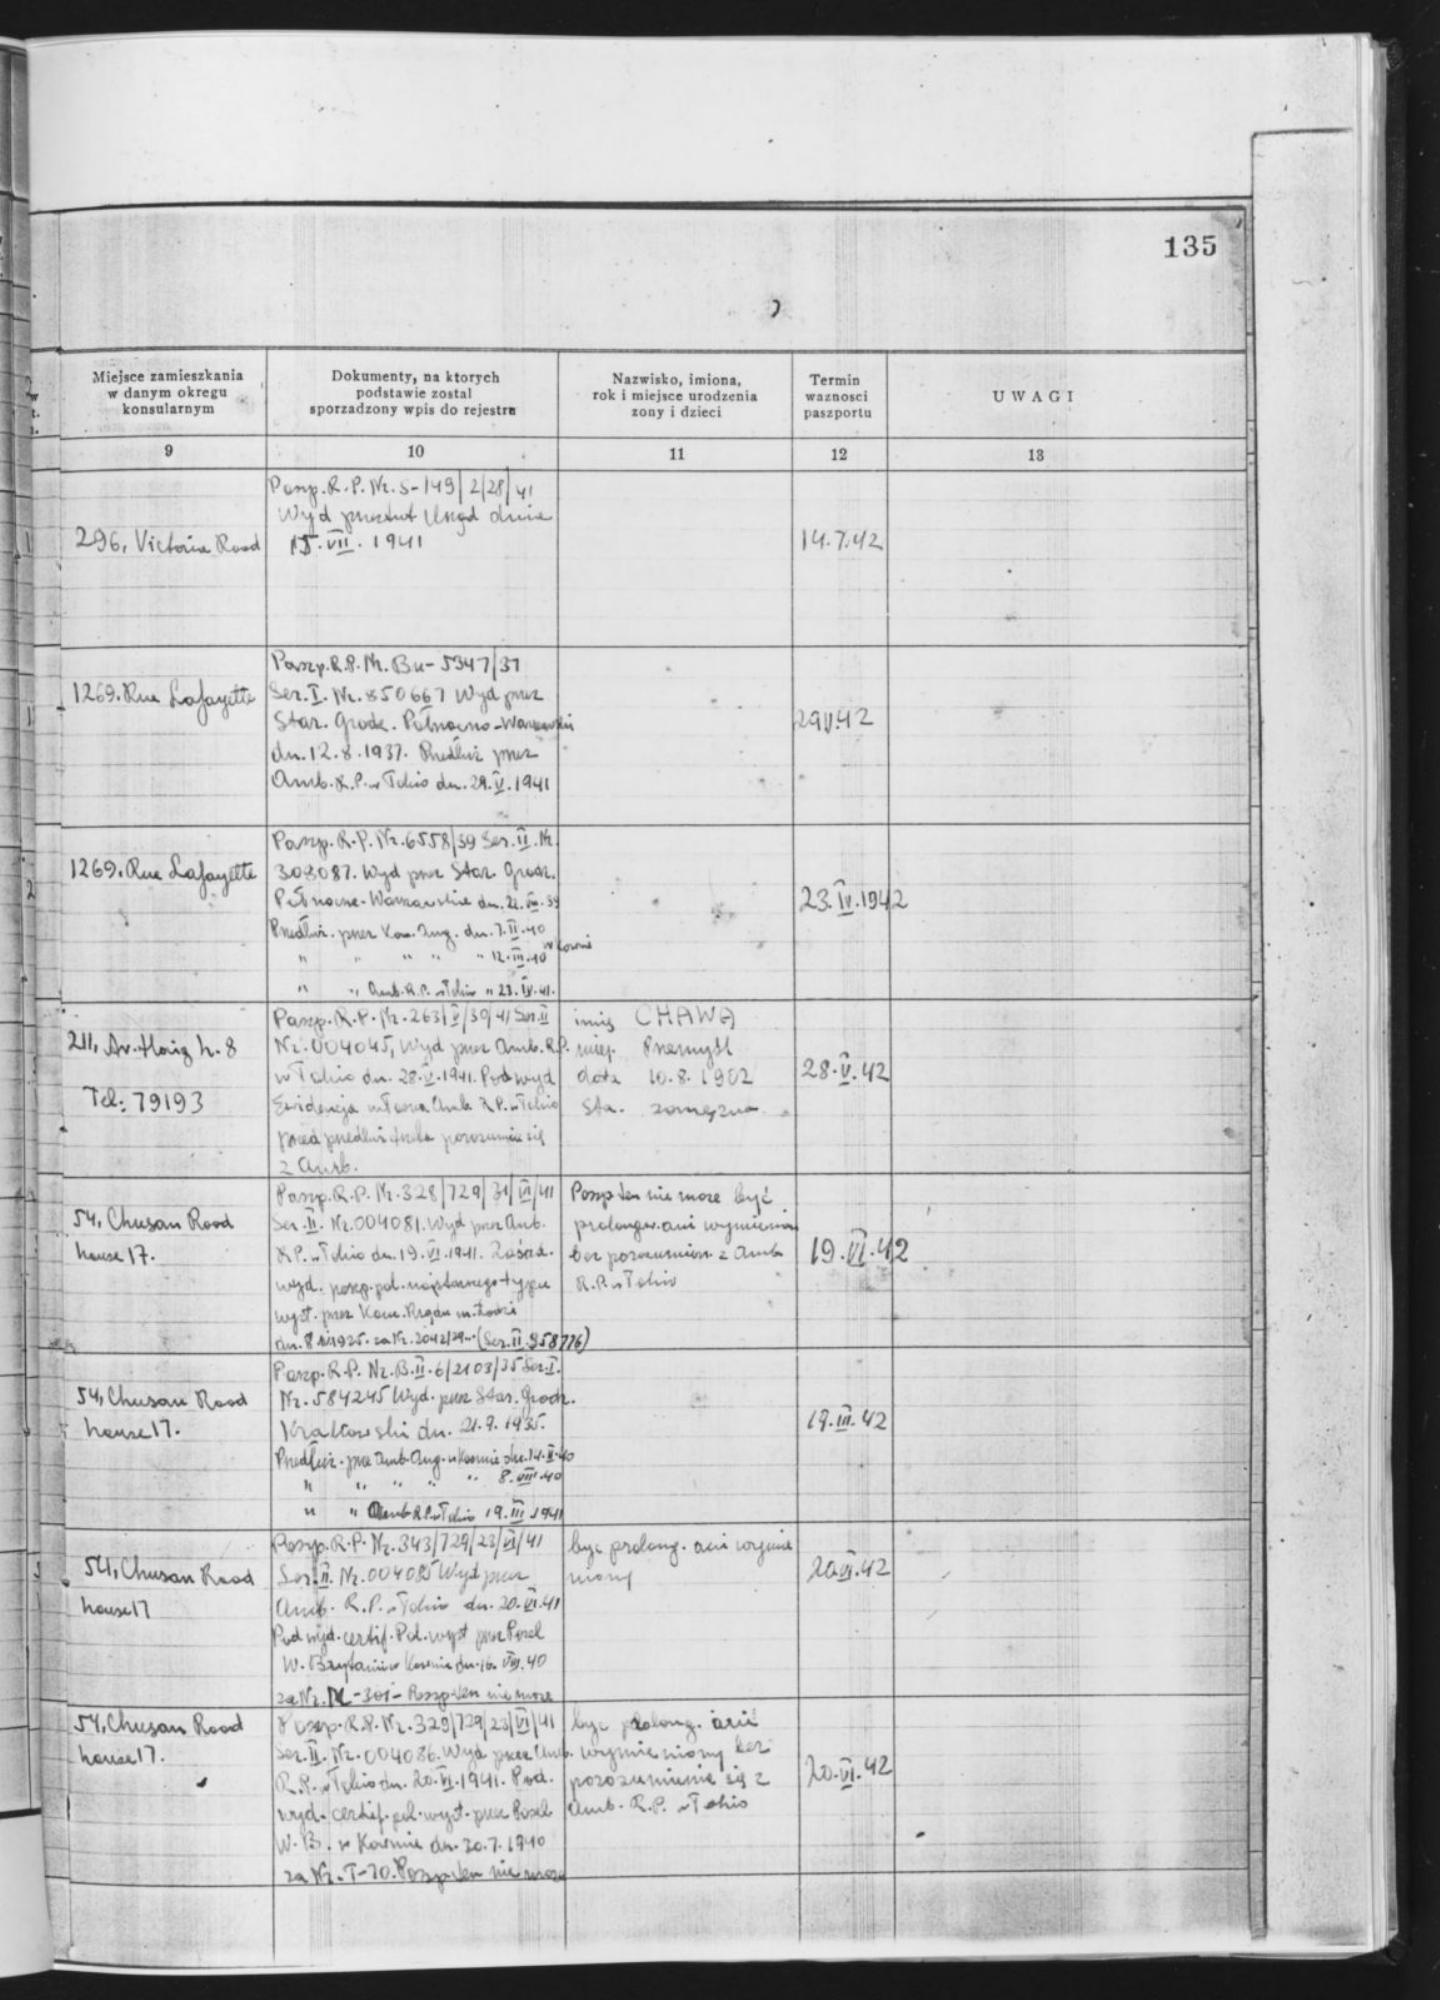 135
Miejsce zamieszkania
w danym okregu
konsularnym
Dokumenty, na ktorych
podstawie zostal
sporzadzony wpis do rejestru
Nazwisko, imiona,
rok i miejsce urodzenia
zony i dzieci
Termin
waznosci
paszportu
UWAGI
9
10
11
12
13
296, Victoria Road
Paszp. R. P. Nr. S-149/2/28/41
Wyd przez tut Urząd dnia
15. VII. 1941
14.7.42
1269. Rue Lafayette
Paszp. R.P. Nr. Bu-5347/37
Ser. I. Nr. 850667 Wyd przez
Star. Grodz. Północno-Warszawski
dn. 12.8.1937. Przedłuż przez
Amb. R.P. w Tokio dn. 29. V. 1941
29.V.42
1269. Rue Lafayette
Paszp. R.P. Nr. 6558/39 Ser. II. Nr.
308087. Wyd przez Star. Grodz.
Północno-Warszawskie dn. 22. VIII. 39
Przedłuż. przez Kon. Ang. dn. 7. II. 40
" " " " " 12. III. 40 w Kownie
" " Amb. R.P. w Tokio " 23. IV. 41.
23. IV. 1942
211, Av. Haig h. 8
Tel: 79193
Paszp. R.P. Nr. 263/V/30/41 Ser. II
Nr. 004045, Wyd przez Amb. R.P.
w Tokio dn. 28. V. 1941. Pod wyd
Ewidencja własna Amb R.P. w Tokio
przed przedłuż trzeba porozumieć się
z Amb.
imię CHAWA
miejs. Przemyśl
data 10.8.1902
sta. zamężna
28. V. 42
54, Chusan Road
house 17.
Paszp. R.P. Nr. 328/729/31/VI/41
Ser. II. Nr. 004081. Wyd przez Amb.
R.P. w Tokio dn. 19. VI. 1941. Zaśad.
wyd. paszp. pol. najstarszego typu
wyst. przez Kom. Rządu m. Łodzi
dn. 8 1925. za Nr. 2042/29 (Ser. II 958776)
Paszp ten nie może być
prolongow. ani wymienion
bez porozumien. z Amb
R.P. w Tokio
19. VI. 42
54, Chusan Road
house 17.
Paszp. R.P. Nr. B. II. 6/2103/35 Ser. I.
Nr. 584245 Wyd. przez Star. Grodz.
Krakowski dn. 21.9.1935.
Przedłuż. prze Amb. Ang. w Kownie dn. 14. II. 40
" " " " " 8. VIII. 40
" " Amb R.P. w Tokio 19. III 1941
19. III. 42
54, Chusan Road
house 17
Paszp. R.P. Nr. 343/729/23/VI/41
Ser. II. Nr. 004085 Wyd przez
Amb. R.P. w Tokio dn. 20. VI. 41
Pod wyd. certif. Pol. wyst przez Posel
W. Brytanii w Kownie dn. 16. VIII. 40
za Nr. -301- Paszp ten nie może
być prolong. ani wymie
niony
20.VI.42
54, Chusan Road
house 17.
Paszp. R.P. Nr. 329/729/23/VI/41
Ser. II. Nr. 004086. Wyd przez Amb.
R.P. w Tokio dn. 20. VI. 1941. Pod.
wyd. certif. pol. wyst. przez Posel
W. B. w Kownie dn. 30.7.1940
za Nr. T-70. Paszp ten nie może
być prolong. ani
wymieniony bez
porozumienie się z
Amb. R.P. w Tokio
20. VI. 42